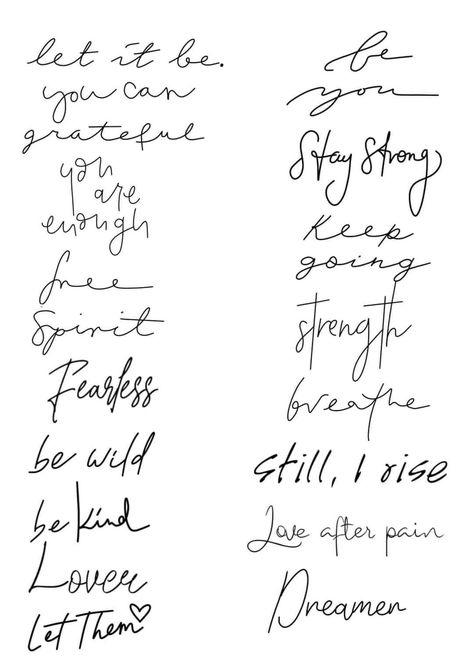 let it be.
you can
grateful
you
are
enough
free
Spirit
Fearless
be wild
be kind
Lover
Let Them
be
you
Stay Strong
Keep
going
strength
breathe
still, I rise
Love after pain
Dreamer